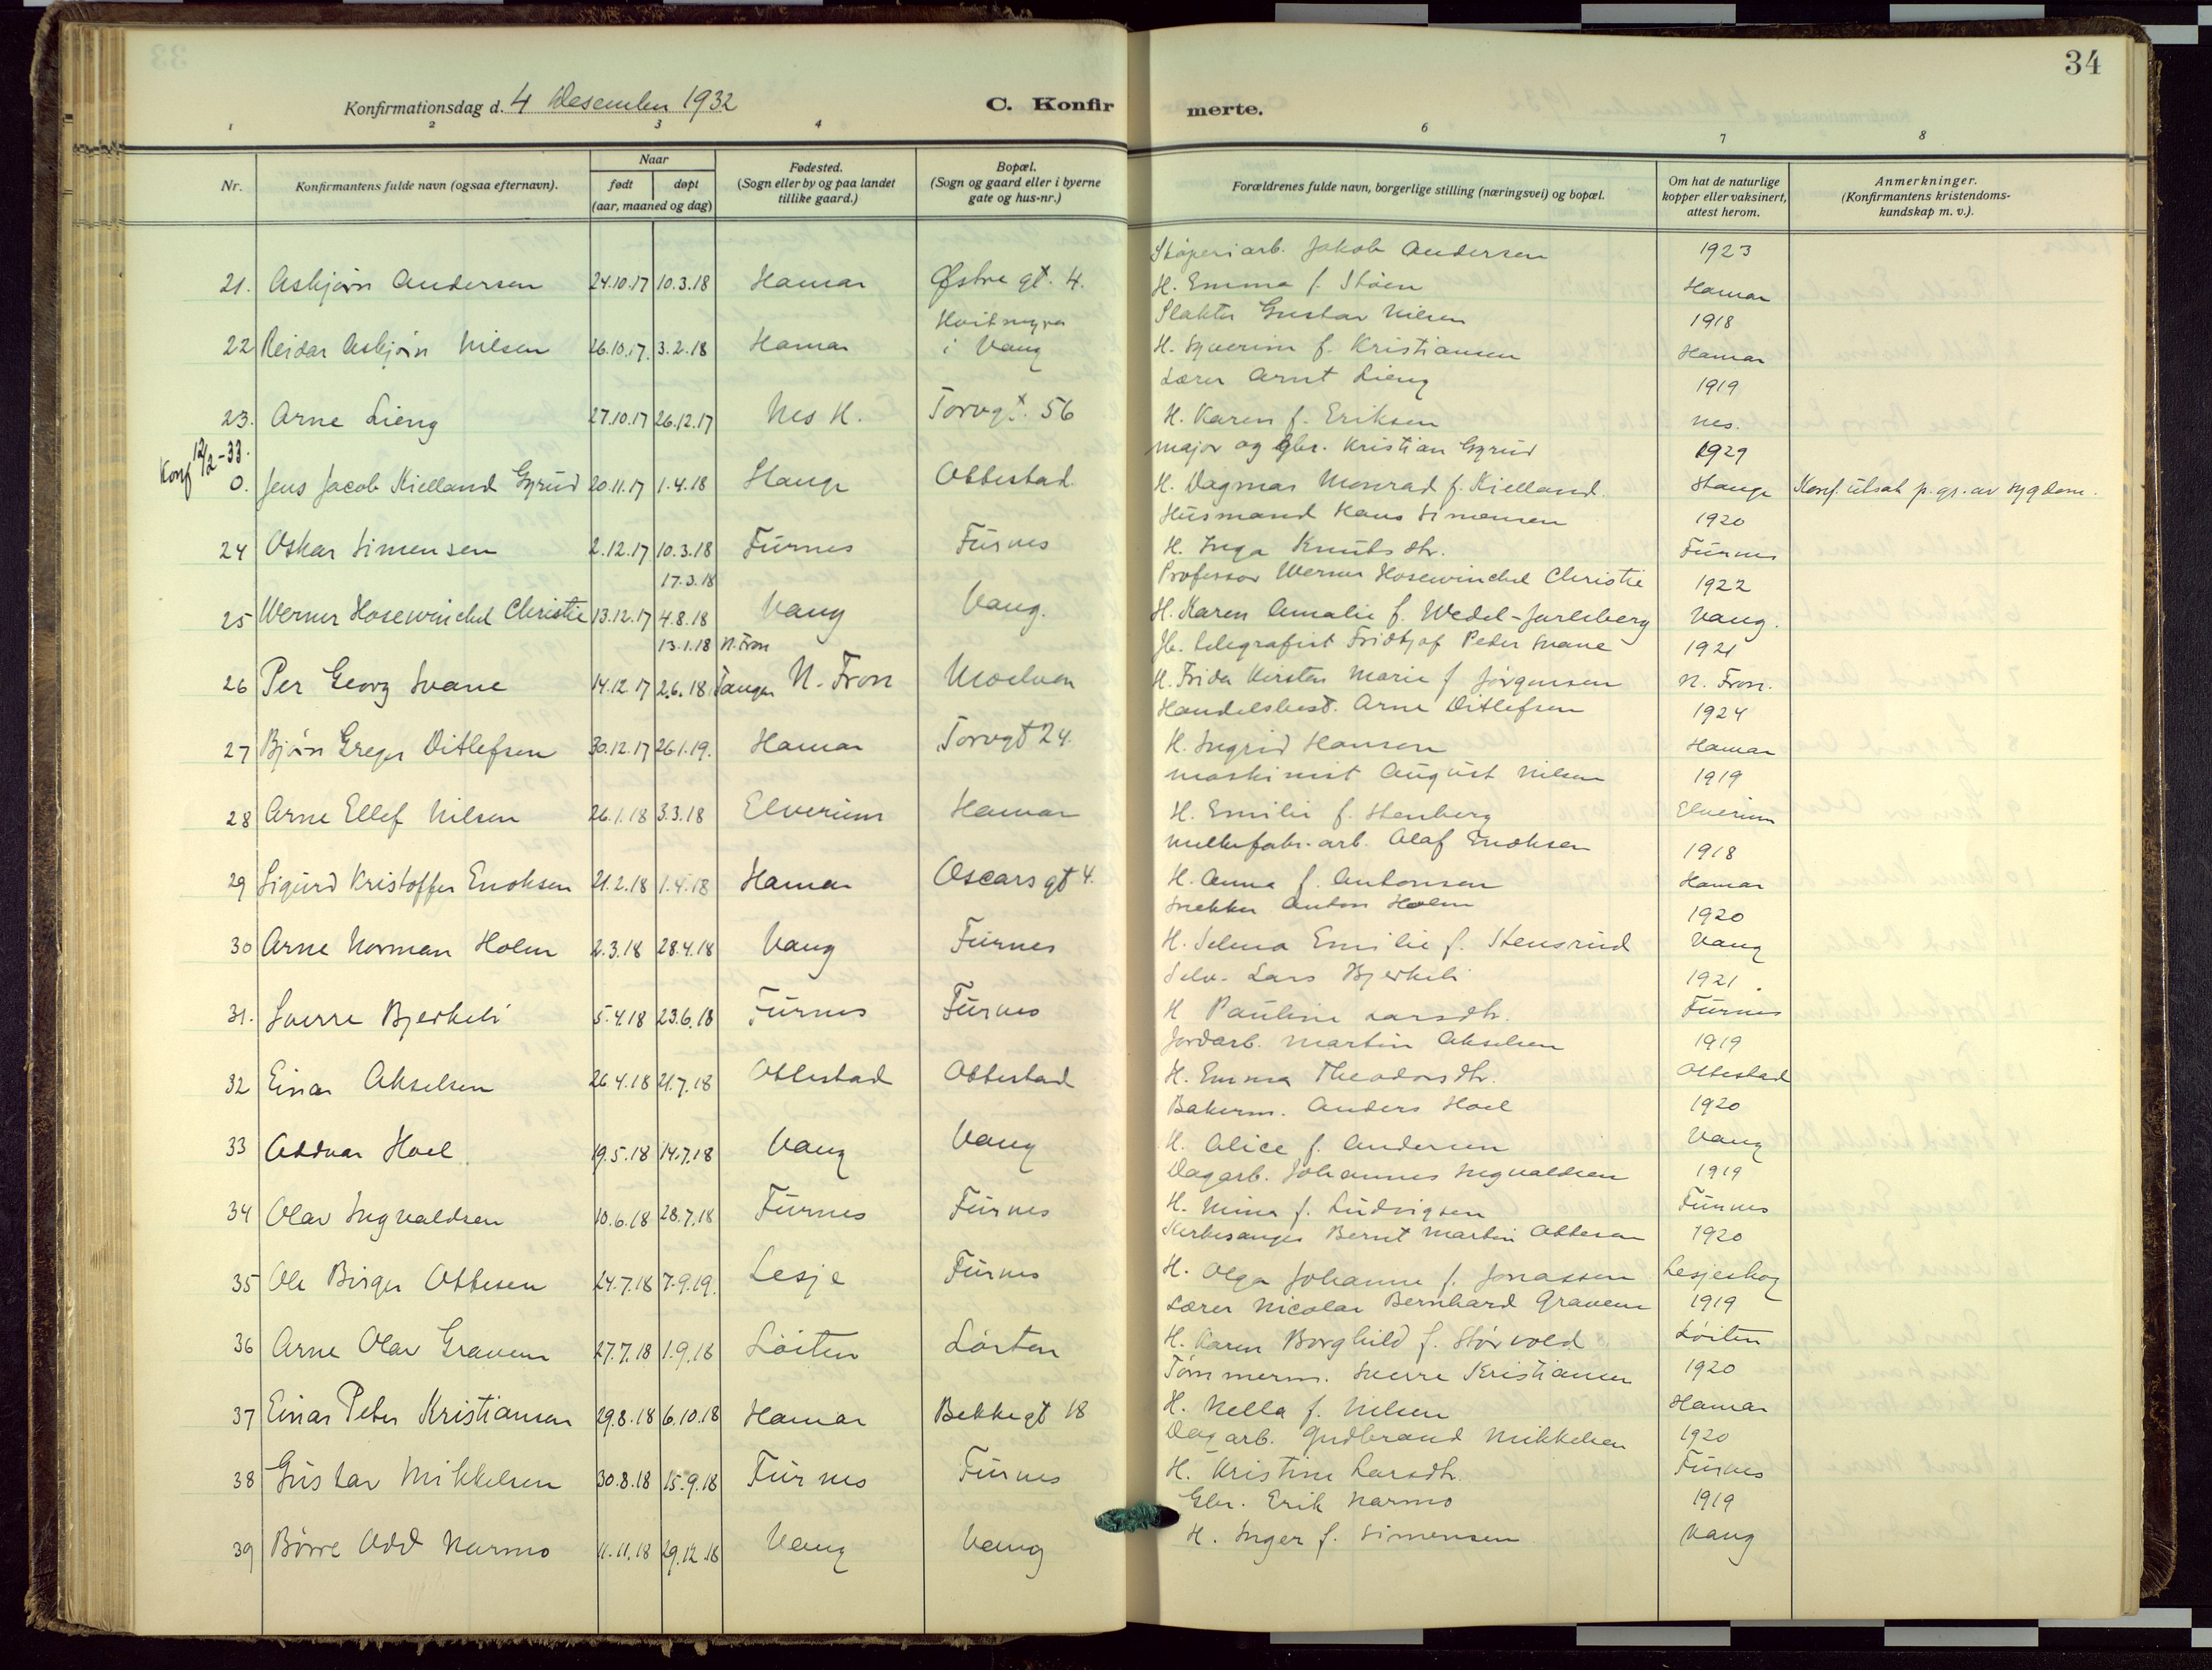 34
Konfirmationsdag d. 4 Desember 1932
C. Konfirmerte.
1 2 3 4 6 7 8
Nr.
Konfirmantens fulde navn (ogsaa efternavn).
Naar
født
døpt
(aar, maaned og dag)
Fødested.
(Sogn eller by og paa landet
tillike gaard.)
Bopæl.
(Sogn og gaard eller i byerne
gate og hus-nr.)
Forældrenes fulde navn, borgerlige stilling (næringsvei) og bopæl.
Om hat de naturlige
kopper eller vaksinert,
attest herom.
Anmerkninger.
(Konfirmantens kristendoms-
kundskap m. v.).
Støperiarb. Jakob Andersen 1923
21. Asbjørn Andersen 24.10.17 10.3.18 Hamar Østre gt. 4. H. Emma f. Støen Hamar
Hvitmyra Slakter Gustav Nilsen 1918
22 Reidar Asbjørn Nilsen 26.10.17. 3.2.18 Hamar i Vang H. Syverine f. Kristiansen Hamar
Lærer Arnt Lieng 1919
23. Arne Lieng 27.10.17 26.12.17 Nes H. Torvgt. 56 H. Karen f. Eriksen Nes.
Konf 12/2-33. Major og gbr. Kristian Gyrud 1929
0. Jens Jacob Kielland Gyrud 20.11.17 1.4.18 Stange Ottestad H. Dagmar Monrad f. Kielland. Stange Konf. utsat p.gr. av sygdom.
Husmand Hans Simensen 1920
24 Oskar Simensen 2.12.17 10.3.18 Furnes Furnes H. Inga Knutsdtr. Furnes
17.3.18 Professor Werner Hosewinckel Christie 1922
25 Werner Hosewinckel Christie 13.12.17 4.8.18 Vang Vang. H. Karen Amalie f. Wedel-Jarlsberg Vang.
13.1.18 N. Fron Jb. telegrafist Fridtjof Peder Svane 1921
26 Per Georg Svane 14.12.17 2.6.18 Tangen N. Fron Moelven H. Frida Kirsten Marie f Jørgensen N. Fron.
Handelsbest. Arne Ditlefsen 1924
27 Bjørn Greger Ditlefsen 30.12.17 26.1.19. Hamar Torvgt 24. H. Ingrid Hansen Hamar
Maskinist August Nilsen 1919
28 Arne Ellef Nilsen 26.1.18 3.3.18 Elverum Hamar H. Emilie f. Stenberg Elverum
Melkefabr. arb. Olaf Enoksen 1918
29 Sigurd Kristoffer Enoksen 21.2.18 1.4.18 Hamar Oscarsgt 4. H. Anna f. Antonsen Hamar
Snekker Anton Holm 1920
30 Arne Norman Holm 2.3.18 28.4.18 Vang Furnes H. Selma Emilie f. Stensrud Vang
Selv. Lars Bjerkeli 1921.
31. Sverre Bjerkeli 5.4.18 23.6.18 Furnes Furnes H Pauline Larsdtr. Furnes
Jordarb. Martin Akselsen 1919
32 Einar Akselsen 26.4.18 21.7.18 Ottestad Ottestad H. Emma Theodorsdtr. Ottestad
Bakerm. Anders Hoel 1920
33 Oddvar Hoel. 19.5.18 14.7.18 Vang Vang H. Alice f. Andersen Vang
Dagarb. Johannes Ingvaldsen 1919
34 Olav Ingvaldsen 10.6.18 28.7.18 Furnes Furnes H. Mina f. Ludvigsen Furnes
Kirkesanger Bernt Martin Ottesen 1920
35 Ole Birger Ottesen 24.7.18 7.9.19. Lesje Furnes H. Olga Johanne f. Jonassen Lesjeskog
Lærer Nicolai Bernhard Gravem 1919
36 Arne Olav Gravem 27.7.18 1.9.18 Løiten Løiten H. Karen Borghild f. Størvold Løiten
Tømmerm. Sverre Kristiansen 1920
37 Einar Peter Kristiansen 29.8.18 6.10.18 Hamar Bekkegt 18 H. Nella f. Nilsen Hamar
Dagarb. Gudbrand Mikkelsen 1920
38 Gustav Mikkelsen 30.8.18 15.9.18 Furnes Furnes H. Kristine Larsdtr. Furnes
Gbr. Erik Narmo 1919
39 Børre Odd Narmo 11.11.18 29.12.18 Vang Vang H. Inger f. Simensen Vang